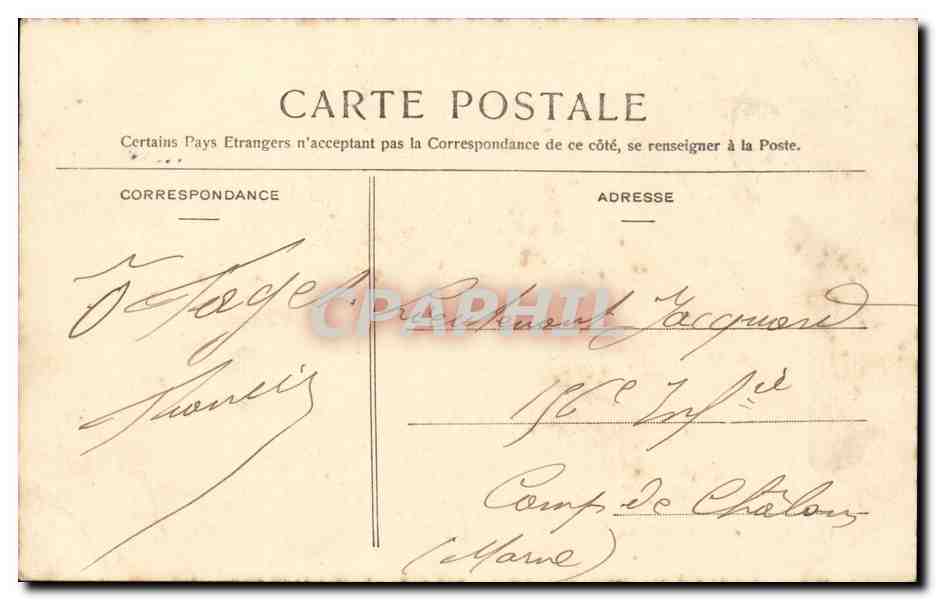 CARTE POSTALE
Certains Pays Etrangers n'acceptent pas la Correspondance de ce côté, se renseigner à la Poste.
CORRESPONDANCE
ADRESSE
CPAPHIL
Lieutenant Jacquard
156e Infie
Camp de Châlons
(Marne)